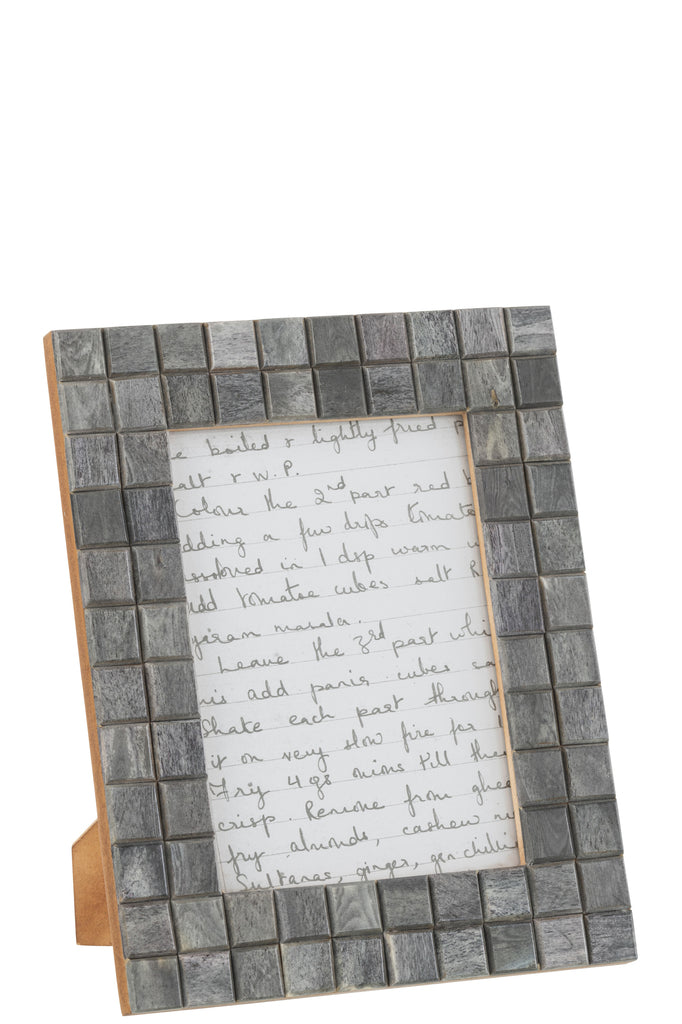 e boiled & lightly fried p
alt & W.P.
Colour the 2nd part red b
dding a few drops tomato
ssolved in 1 dsp warm w
add tomatoe cubes salt R
garam masala.
Leave the 3rd part whi
mis add panir cubes sa
Shake each part through
it on very slow fire for 1
Fry 4 ozs onions till the
crisp. Remove from ghee
fry almonds, cashew nu
Sultanas, ginger, gen chillie